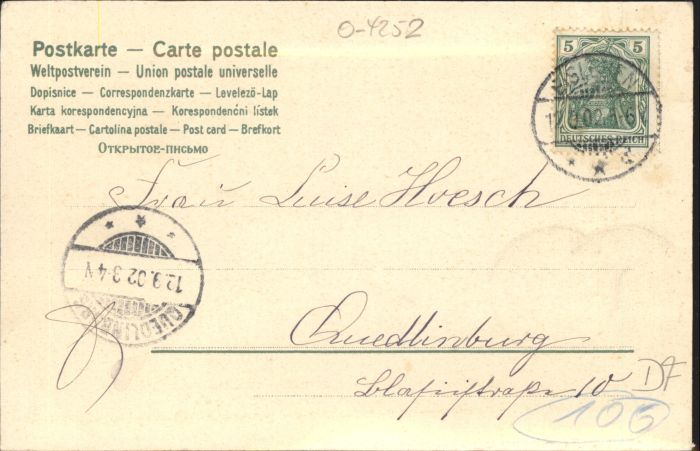 O-4252
Postkarte — Carte postale
Weltpostverein — Union postale universelle
Dopisnice — Correspondenzkarte — Levelező-Lap
Karta korespondencyjna — Korespondenční lístek
Briefkaart — Cartolina postale — Post card — Brefkort
Открытое-письмо
5 5
DEUTSCHES REICH
EISLEBEN
Frau Luise Hoesch
12.9.02 3-4 V
QUEDLINBURG
Quedlinburg
Blasiistraße 10
D7
106